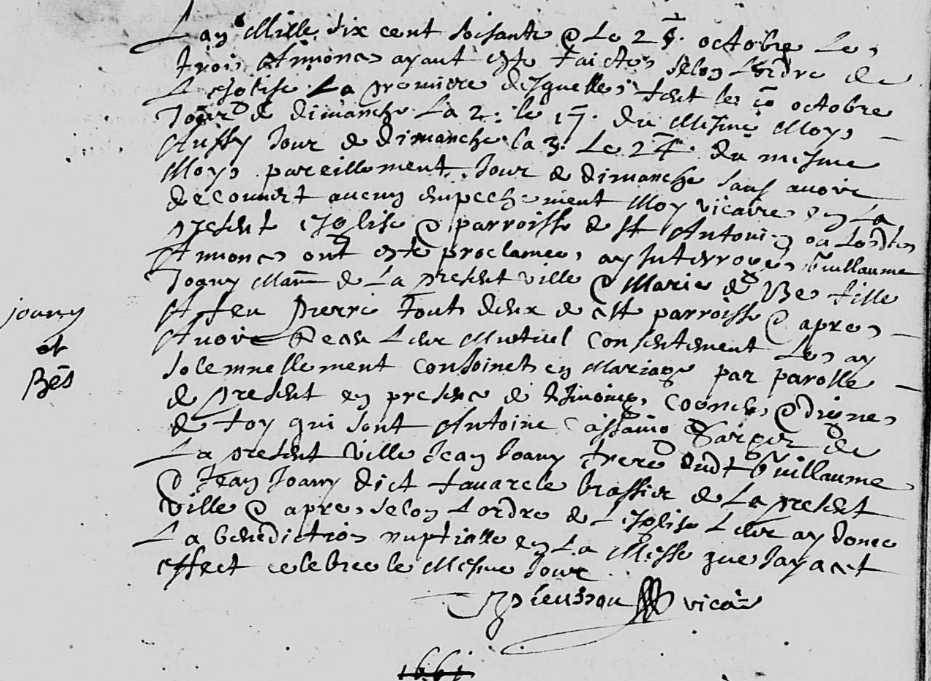 Lan Mille six cent soisante & Le 25. octobre Les
trois Annonces ayant este faictes selon Lordre de
LEsglise La premiere desquelles feut le 10 octobre
Jour de dimanche La 2. le 17. du Mesme Moys
Aussy Jour de dimanche la 3. Le 24. du mesme
Moys pareillement Jour de dimanche sans avoir
decouvert aucun empechement Moy vicaire en La
presente Esglise & parroisse de St Antoine ou Lesdites
Annonces ont este proclamees ay Interroges Guillaume
Joany de La present ville & Marie de Bes fille
A feu Pierre touts deux de cest parroisse & apres
Avoir heu Leur Mutuel Consentement Les ay
solemnellement conjoincts en Mariage par parolle
de present en presence de tesmoings Cogneus & dignes
de foy qui sont Antoine de
La present ville Jean Joany frere dudt Guillaume
& Jean Joany dict brassier de La present
ville & apres selon Lordre de LEsglise Leur ay donne
La benediction nuptialle en La Messe que Jay a cet
effect celebree le Mesme Jour
vicaire
Joany
et
Bes
1661